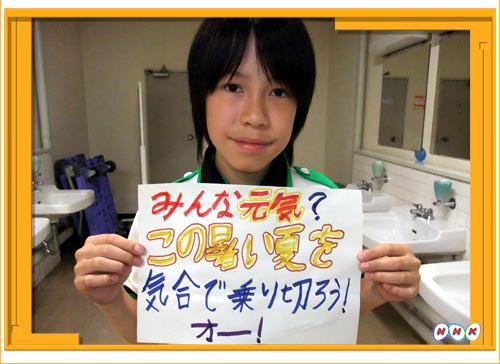 みんな元気?
この暑い夏を
気合で乗り切ろう!
オー!
NHK